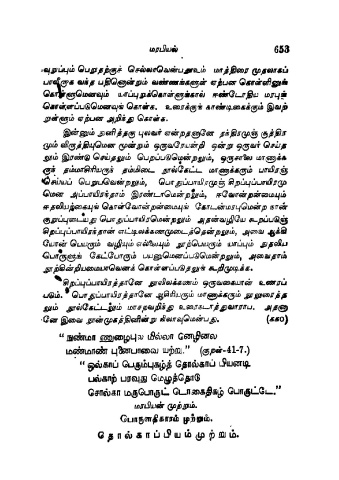 மரபியல் 653
வுறுப்பும் பெறுதற்குச் செல்லாவென்பதூஉம் மாத்திரை முதலாகப்
பாவீறாக வந்த பதினொன்றும் வண்ணங்களுள் ஏற்பன கொள்ளினுங்
கொள்ளாமெனவும் யாப்புறுக்கொள்ளுங்கால் ஈண்டோதிய மரபுள்
கொள்ளப்படுமெனவுங் கொள்க. உரைக்குங் காண்டிகைக்கும் இவற்
றுள்ளும் ஏற்பன அறிந்து கொள்க.
இன்னும் தனித்தகு புலவர் என்றதனானே தந்திரமுஞ் சூத்திர
மும் விருத்தியுமென மூன்றும் ஒருவரேயன்றி ஒன்று ஒருவர் செய்த
லும் இரண்டு செய்தலும் பெறப்படுமென்றலும், ஒருசாலை மாணாக்க
ருந் தம்மாசிரியருந் தம்மிடை நூல்கேட்ட மாணாக்கரும் பாயிரஞ்
செய்யப் பெறுபவென்றலும், பொதுப்பாயிரமுஞ் சிறப்புப்பாயிரமு
மென அப்பாயிரந்தாம் இரண்டாமென்றலும், ஈவோன்றன்மையும்
ஈதலியற்கையுங் கொள்வோன்றன்மையுங் கோடன்மரபுமென்ற நான்
குறுப்புடையது பொதுப்பாயிரமென்றலும் அதன்வழியே கூறப்படுஞ்
சிறப்புப்பாயிரந்தான் எட்டிலக்கணமுடைத்தென்றலும், அவை ஆக்கி
யோன் பெயரும் வழியும் எல்லையும் நூற்பெயரும் யாப்பும் நுதலிய
பொருளுங் கேட்போரும் பயனுமெனப்படுமென்றலும், அவைதாம்
நூற்கின்றியமையாவெனக் கொள்ளப்படுதலுங் கூறிமுடிக்க.
சிறப்புப்பாயிரத்தானே நூலிலக்கணம் ஒருவகையான் உணரப்
படும். பொதுப்பாயிரத்தானே ஆசிரியரும் மாணாக்கரும் நூலுரைத்த
லும் நூல்கேட்டலும் மாசறவறிந்து உரைநடாத்துவாராப. அதனா
னே இவை நூன்முகத்தினின்று நிலாவுமென்பது. (௧௧௦)
"நுண்மா ணுழைபுல மில்லா னெழினல
மண்மாண் புனைபாவை யற்று." (குறள்-41-7.)
"ஒல்காப் பெரும்புகழ்த் தொல்காப் பியனடி
பல்காற் பரவுது மெழுத்தொடு
சொல்கா மருபொருட் டொகைதிகழ் பொருட்டே."
மரபியல் முற்றும்.
பொருளதிகாரம் முற்றும்.
தொல்காப்பியம் முற்றும்.